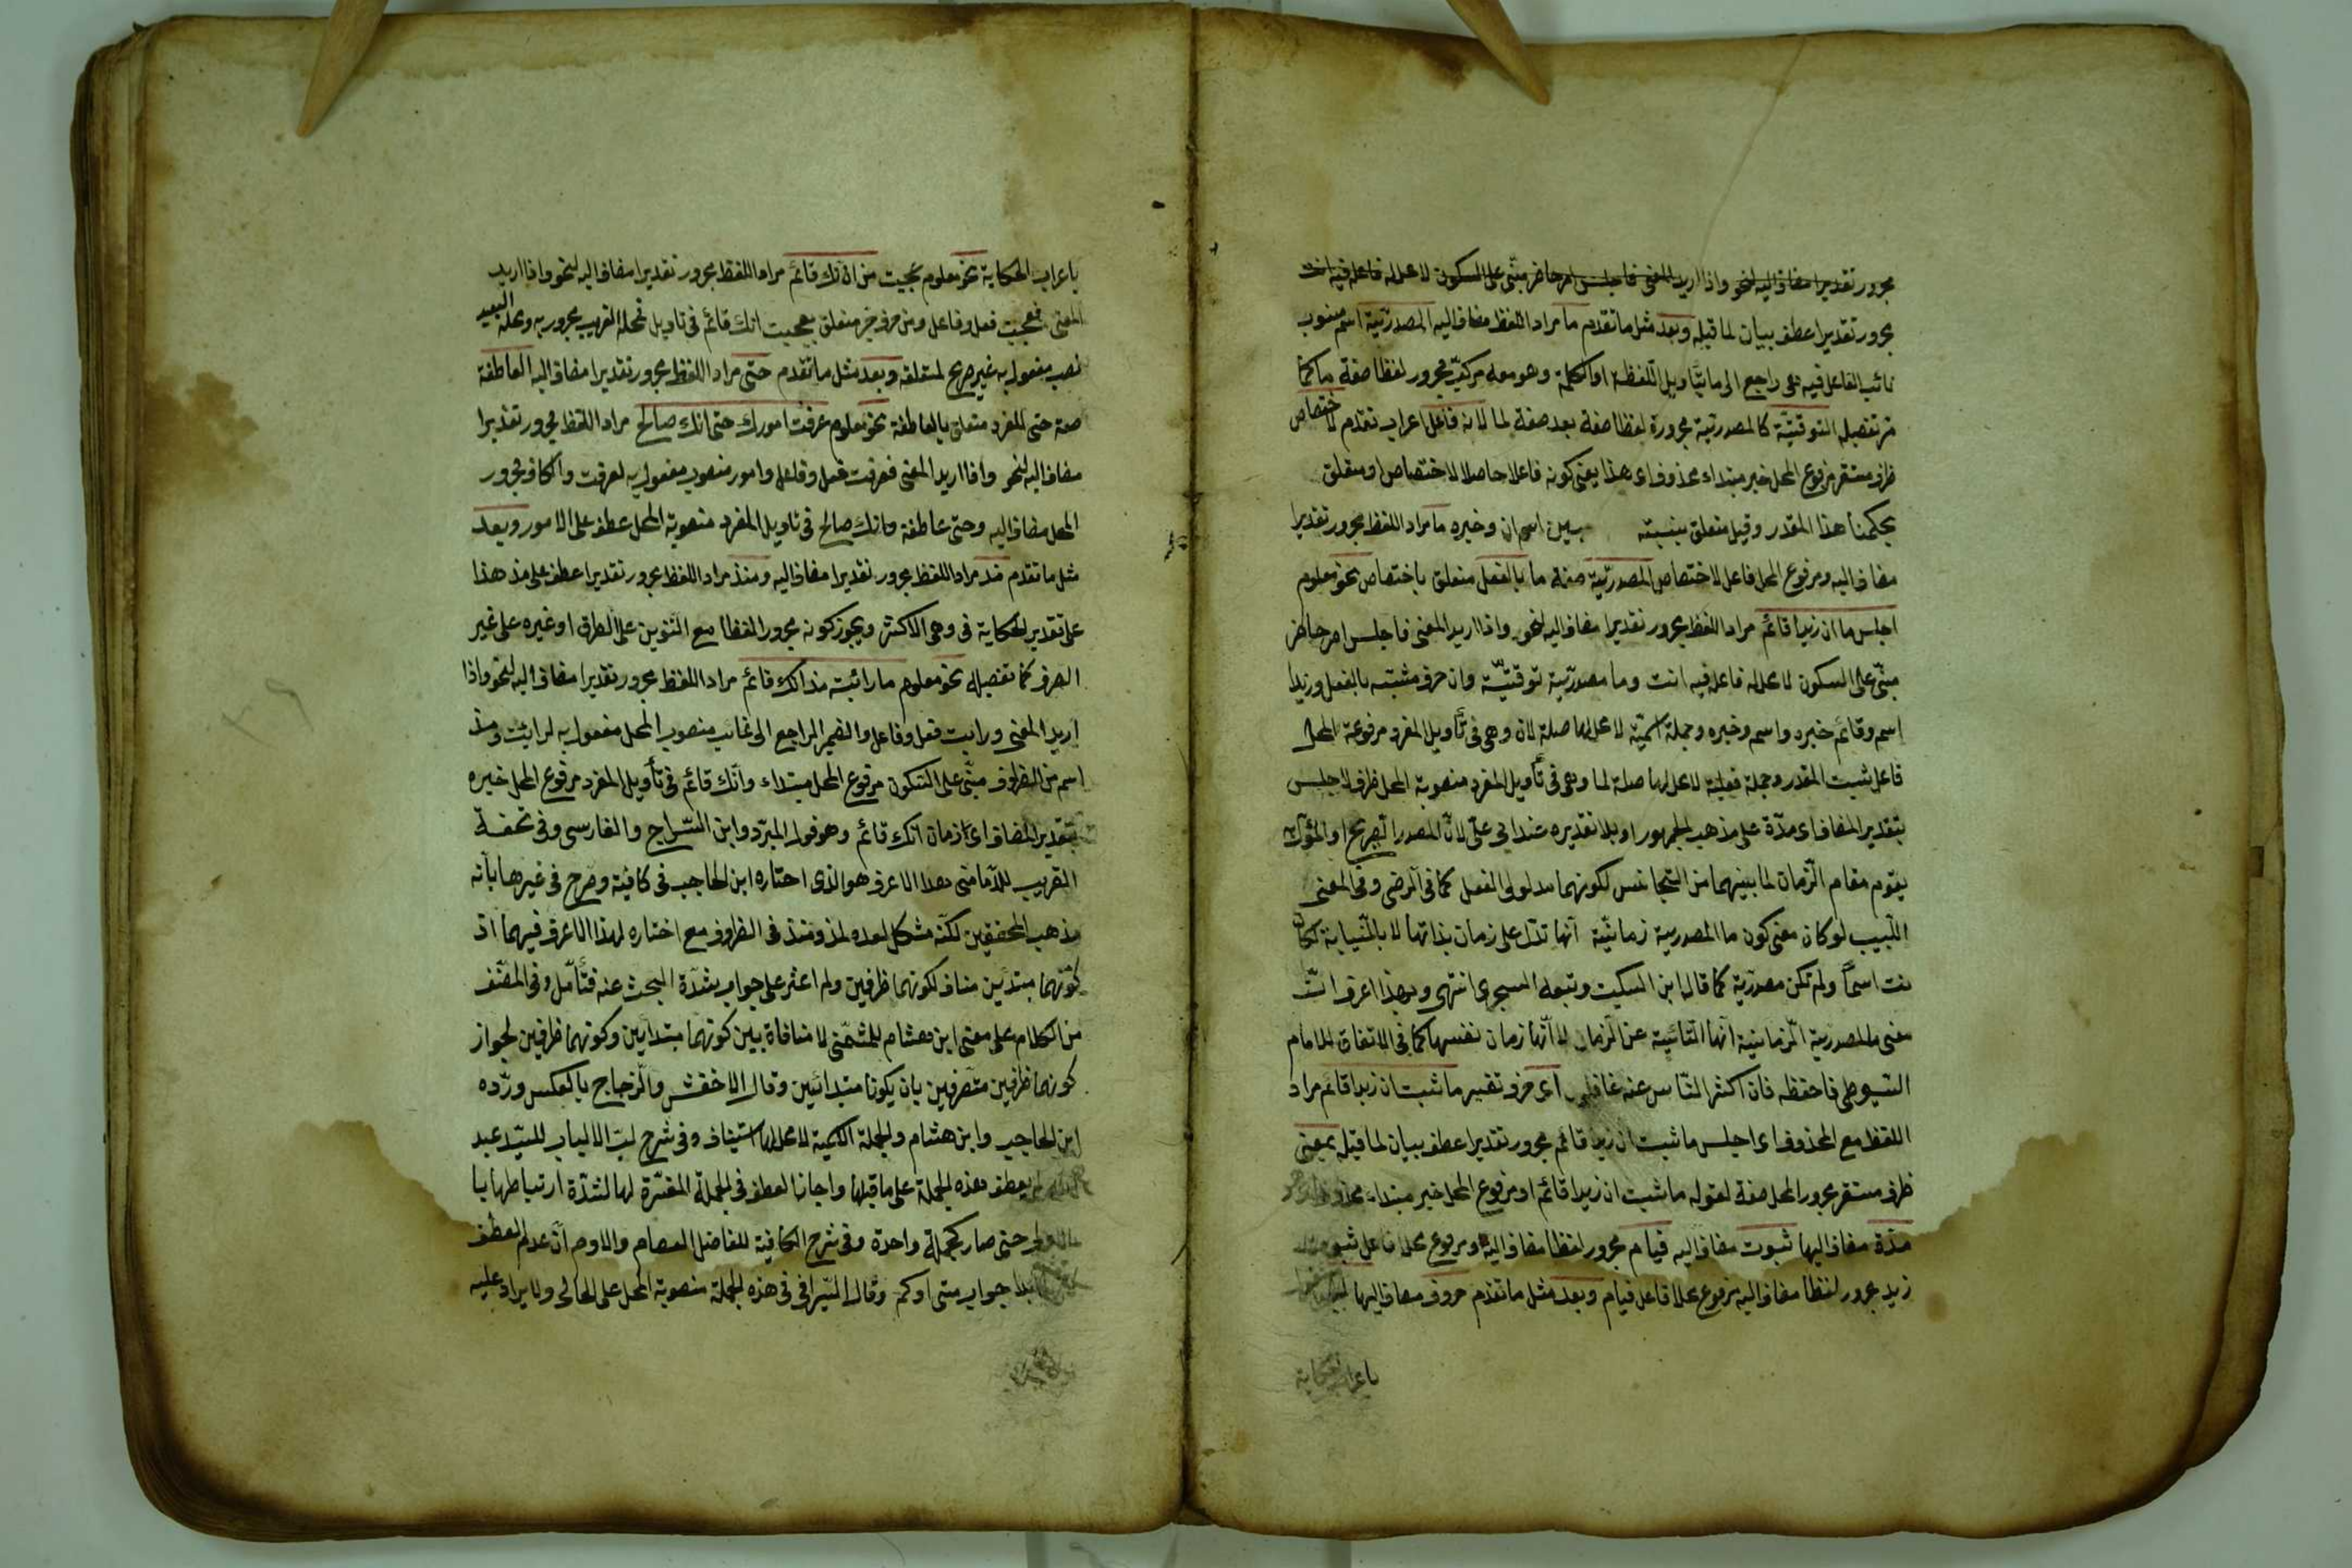 مجرور تقديرا مضاف اليه لنحو واذا اريد المعنى فاجلس امر حاضر مبنى على السكون لا محل له فاعله فيه انت
مجرور تقديرا عطف بيان لما قبله وبعد مثل ما تقدم ما مراد اللفظ مضاف اليه المصدرية اسم منسوب
نائب الفاعل فيه هى راجع الى ما بتأويل اللفظة او الكلمة وهو معه مركب مجرور لفظا صفة ما كما
مر تفصيله التوقتية كالمصدرية مجرورة لفظا صفة بعد صفة لما لانه فاعل اعراب تقدم لاختصاص
ظرف مستقر مرفوع المحل خبر مبتداء محذوف اى هذا يعنى كونه فاعلا حاصلا لاختصاص او متعلق
بحكمنا هذا المقدر وقيل متعلق بنسبته بين اسم ان وخبره ما مراد اللفظ مجرور تقديرا
مضاف اليه ومرفوع المحل فاعل لاختصاص المصدرية صفة ما بالفعل متعلق باختصاص نحو معلوم
اجلس ما ان زيدا قائم مراد اللفظ مجرور تقديرا مضاف اليه لنحو واذا اريد المعنى فاجلس امر حاضر
مبنى على السكون لا محل له فاعله فيه انت وما مصدرية توقتية وان حرف مشبه بالفعل وزيدا
اسم وقائم خبره واسم وخبره وجملة اسمية لا محل لها صلة لان وهى فى تأويل المفرد مرفوعة المحل
فاعل ثبت المقدر وجملة فعلية لا محل لها صلة لما وهى فى تأويل المفرد منصوبة المحل ظرف لاجلس
بتقدير المضاف اى مدة على مذهب الجمهور او بلا تقديره عند ابى على لان المصدر الصريح او المؤول
يقوم مقام الزمان لما بينهما من التجانس لكونهما مدلولى الفعل كما فى الرضى وفى المغنى
اللبيب لو كان معنى كون ما المصدرية زمانية انها تدل على زمان بذاتها لا بالنيابة لكان
نت اسما ولم تكن مصدرية كما قال ابن السكيت وتبعه الشجرى انتهى وبهذا اعرف ان
معنى ما المصدرية الزمانية انها النائبة عن الزمان لا انها زمان نفسها كما فى الاتقان للامام
السيوطى فاحفظه فان اكثر الناس عنه غافلون اى حرف تفسير ما ثبت ان زيدا قائم مراد
اللفظ مع المحذوف اى اجلس ما ثبت ان زيدا قائم مجرور تقديرا عطف بيان لما قبله بمعنى
ظرف مستقر مجرور المحل صفة لقوله ما ثبت ان زيدا قائم او مرفوع المحل خبر مبتداء محذوف
مدة مضاف اليها ثبوت مضاف اليه قيام مجرور لفظا مضاف اليه ومرفوع محلا فاعل ثبوت
زيد مجرور لفظا مضاف اليه مرفوع محلا فاعل قيام وبعد مثل ما تقدم حروف مضاف اليها
باعراب الحكاية
باعراب الحكاية نحو معلوم عجبت من انك قائم مراد اللفظ مجرور تقديرا مضاف اليه لنحو واذا اريد
المعنى فعجبت فعل وفاعل ومن حرف جر متعلق بعجبت انك قائم فى تاويل فمحله القريب مجرور به ومحله البعيد
نصب مفعول به غير صريح لمتعلقه وبعد مثل ما تقدم حتى مراد اللفظ مجرور تقديرا مضاف اليه العاطفة
صفة حتى للمفرد متعلق بالعاطفة نحو معلوم عرفت امورك حتى انك صالح مراد اللفظ مجرور تقديرا
مضاف اليه لنحو واذا اريد المعنى فعرفت فعل وفاعل وامور منصوب مفعول به لعرفت والكاف مجرور
المحل مضاف اليه وحتى عاطفة وانك صالح فى تاويل المفرد منصوبة المحل عطف على الامور وبعد
مثل ما تقدم مذ مراد اللفظ مجرور تقديرا مضاف اليه ومنذ مراد اللفظ مجرور تقديرا عطف على مذ هذا
على تقدير الحكاية فى وهى الاكثر ويجوز كونه مجرور لفظا مع التنوين على الصرف او غيره على غير
الصرف كما تفصيله نحو معلوم ما رايته مذ انك قائم مراد اللفظ مجرور تقديرا مضاف اليه لنحو واذا
اريد المعنى ورايت فعل وفاعل والضمير الراجع الى غائب منصوب المحل مفعول به لرايت ومذ
اسم من الظروف مبنى على السكون مرفوع المحل مبتداء وانك قائم فى تأويل المفرد مرفوع المحل خبره
بتقدير المضاف اى زمان انك قائم وهو قول المبرد وابن السراج والفارسى وفى تحفة
القريب للدمامينى هذا الاعراب هو الذى اختاره ابن الحاجب فى كافية وصرح فى غيرها بانه
مذهب المحققين لكنه مشكل لعده لمذ ومنذ فى الظروف مع اختاره لهذا الاعراب فيهما اذ
كونهما مبتدئين مناف لكونهما ظرفين ولم اعثر على جواب بشدة البحث عنه فتأمل وفى المصنف
من الكلام على مغنى ابن هشام للشمنى لا منافاة بين كونهما مبتدايين وكونهما ظرفين لجواز
كونهما ظرفين متصرفين بان يكونا مبتدائين وقال الاخفش والزجاج بالعكس ورده
ابن الحاجب وابن هشام والجملة الاسمية لا محل لها استيناف وفى شرح لب الالباب للسيد عبد
لم يعطف هذه الجملة على ما قبلها واجاز العطف فى الجملة المفسرة لها لشدة ارتباطها با
حتى صار كجملة واحدة وفى شرح الكافية للفاضل العصام والاوجه ان عدم العطف
جواب متى او كم وقال السيرافى فى هذه الجملة منصوبة المحل على الحال ولا يراد عليه